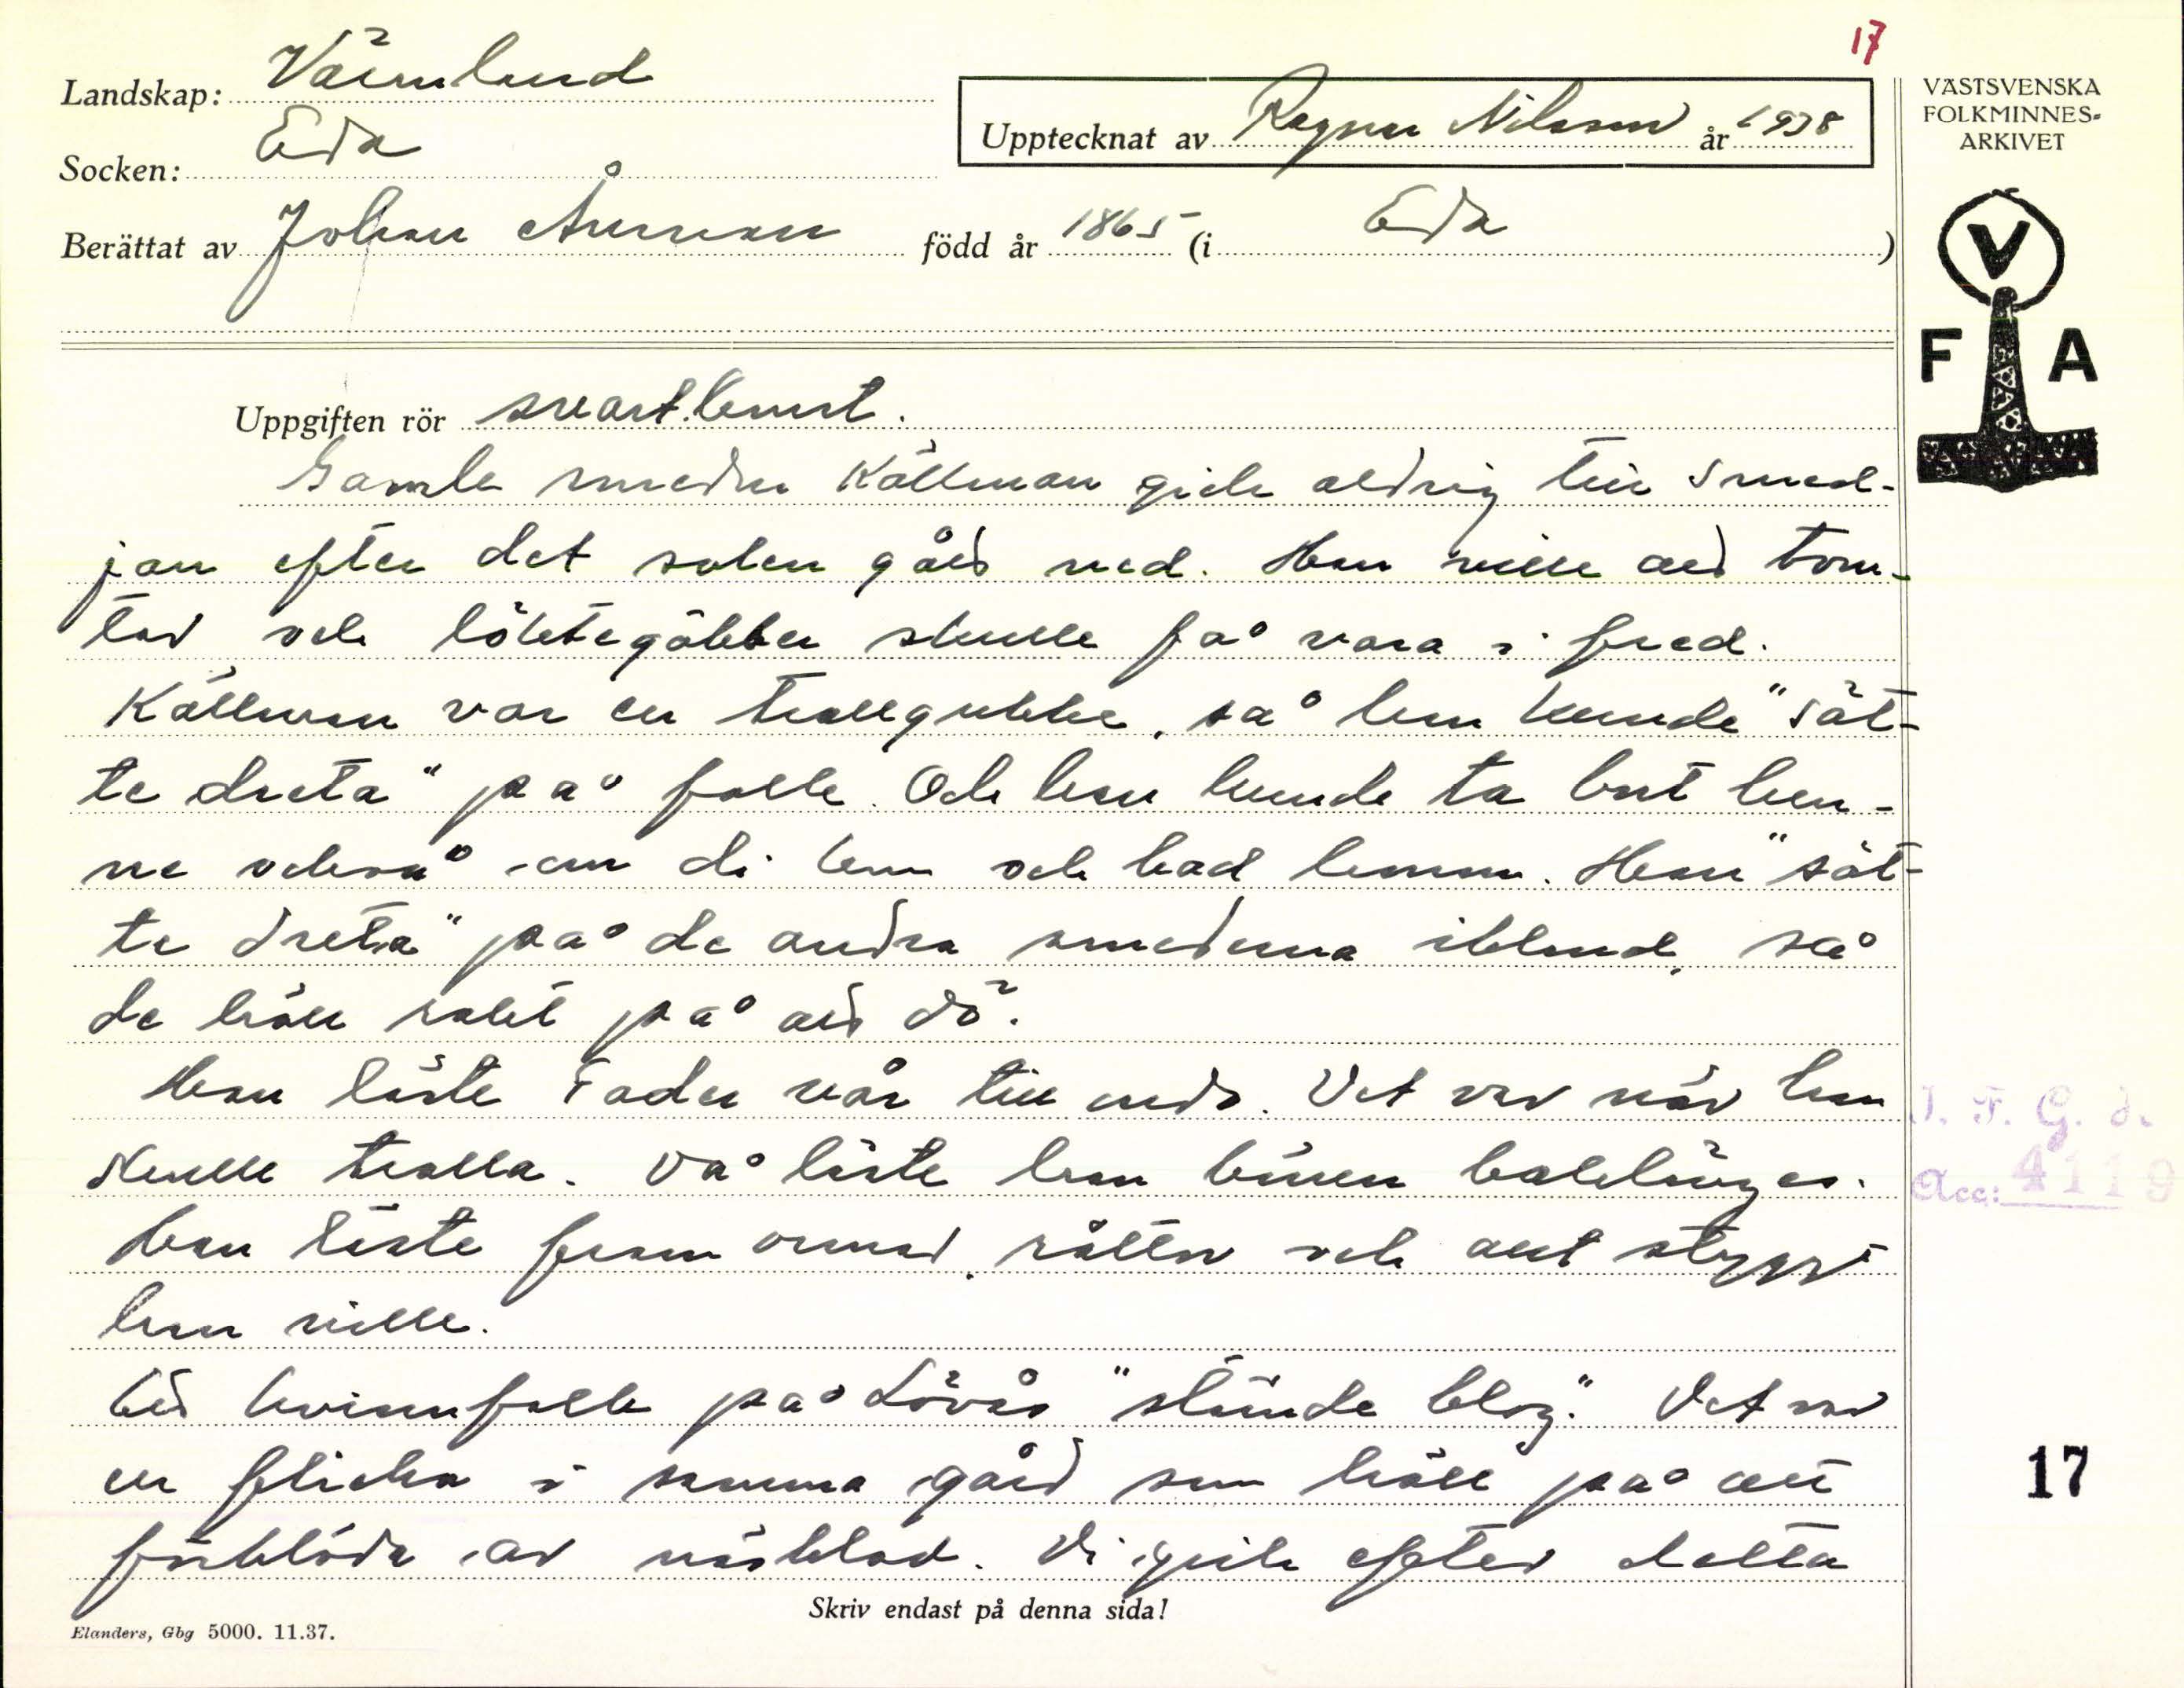 17
Landskap: Värmland
Socken: Eda
Upptecknat av Ragnar Nilsson år 1938
Berättat av Johan Åunman född år 1865 (i Eda)
VÄSTSVENSKA
FOLKMINNES-
ARKIVET
V
F A
Uppgiften rör svartkonst.
Gamle smeden Källman gick aldrig till smed-
jan efter det solen gått ned. Han ville att tom-
tar och lökte gåbber skulle få vara i fred.
Källman var en trollgubbe, så han kunde "sät-
te dreta" på folk. Och han kunde ta bort hen-
ne också om di kom och bad honom. Han "sät-
te dreta" på de andra smederna ibland, så
de höll rakt på att dö.
Han läste Fader vår till ända. Det var när han
skulle trolla. Då läste han bönen baklänges.
Han läste fram ormar, råttor och allt otyg
han ville.
Ett kvinnfolk på Lövås "stämde blog". Det var
en flicka i samma gård som höll på att
förblöda av näsblod. Vi gick efter detta
Skriv endast på denna sida!
Elanders, Gbg 5000. 11.37.
I. F. G. d.
Acc: 4119
17